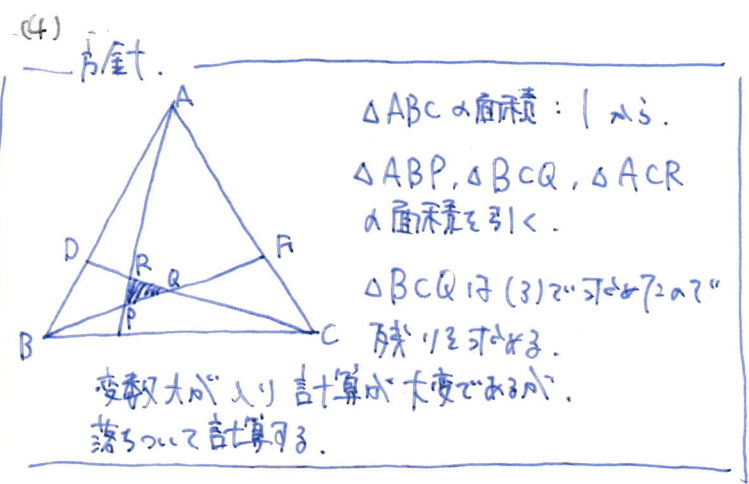 (4)
方針.
A
△ABCの面積:1から.
△ABP, △BCQ, △ACR
の面積を引く.
D
F
R
Q
P
B
C
△BCQは(3)で求めたので
残りを求める.
変数大が入り計算が大変であるが.
落ちついて計算する.